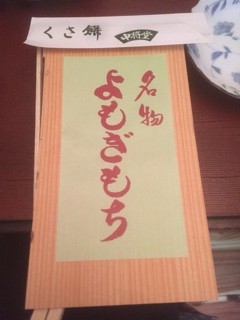 くさ餅 中将堂
名物
よもぎもち